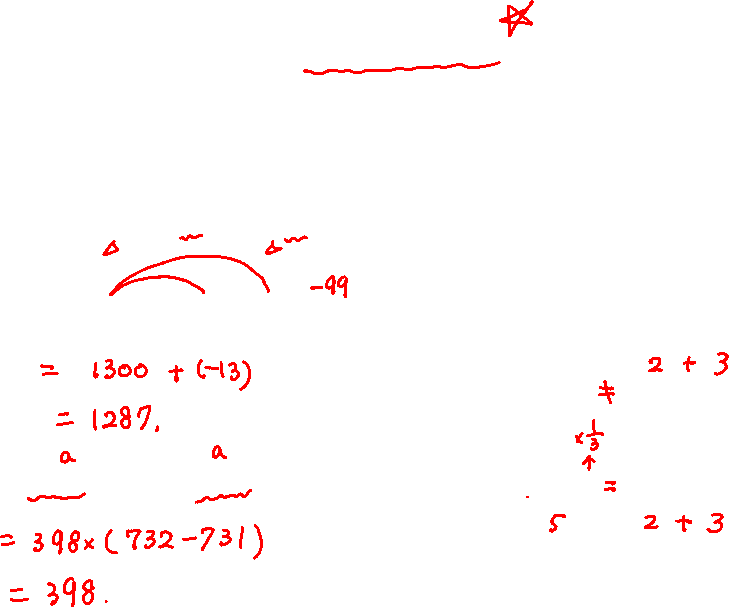 -99
= 1300 + (-13)
= 1287.
a a
= 398 × (732 - 731)
= 398.
2 + 3
≠
× 1/3
↑
=
5 2 + 3